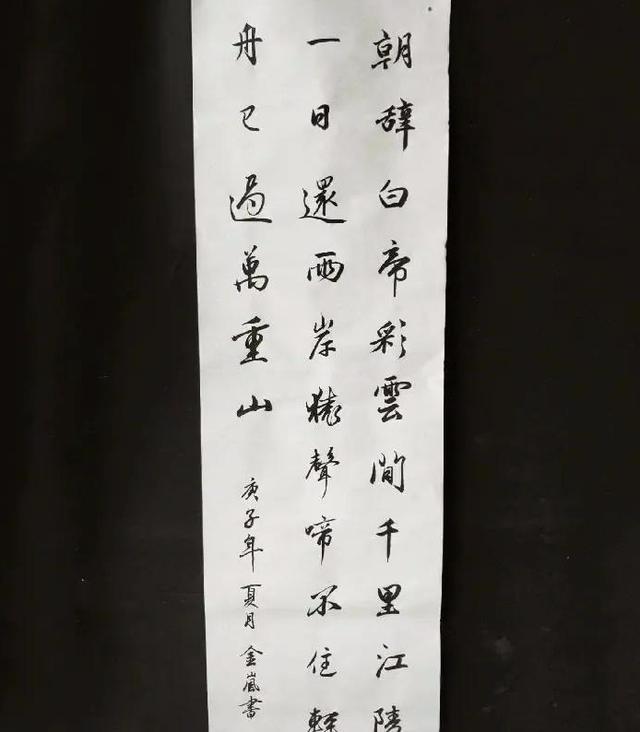 朝辭白帝彩雲間千里江陵
一日還兩岸猿聲啼不住輕
舟已過萬重山
庚子年夏月金嵐書